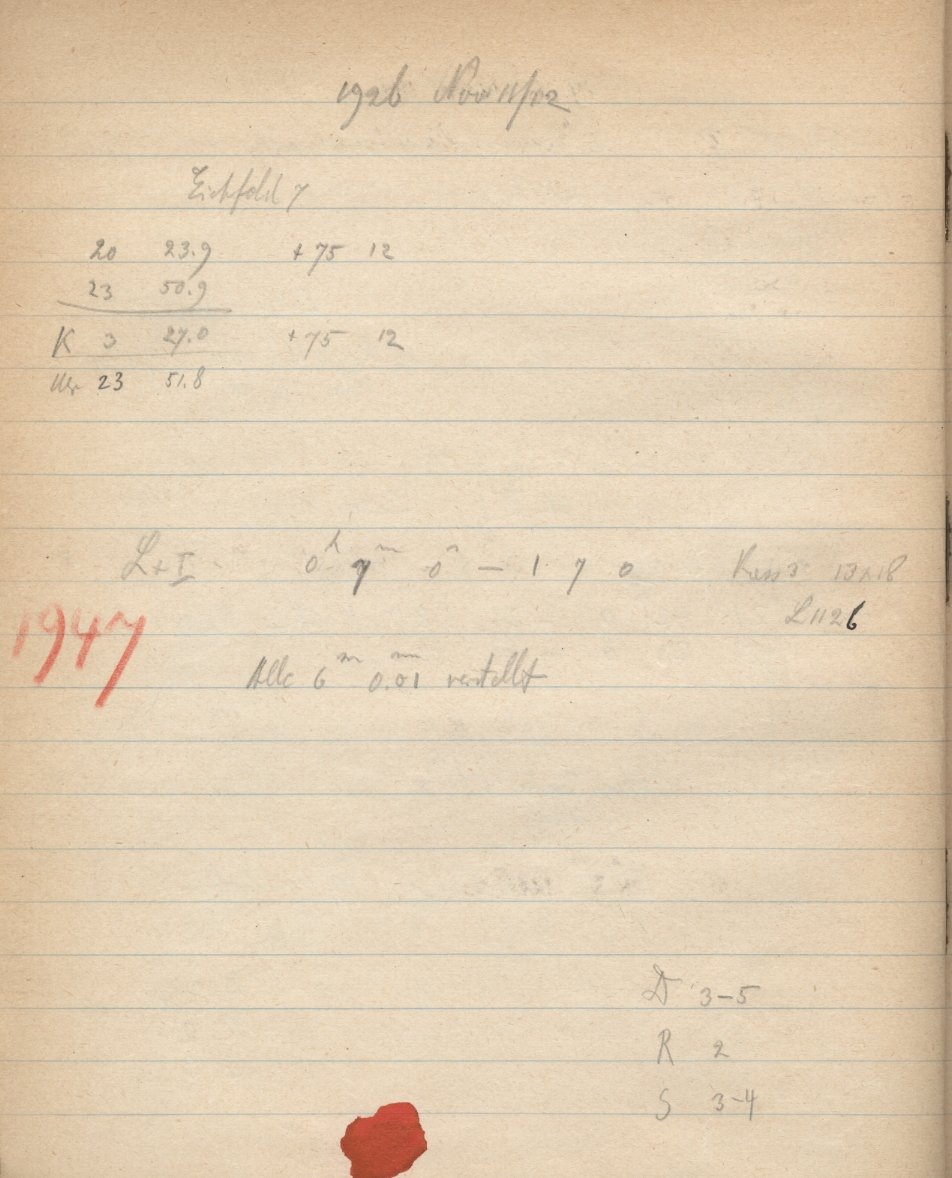 1926 Nov 11/12
Eichfeld 7
20 23.9 +75 12
23 50.9
K 3 27.0 +75 12
Uhr 23 51.8
L+I 0h 7m 0s — 1 7 0 Kass 3 13×18
L1126
1947
Alle 6m 0.01mm verstellt
D 3–5
R 2
S 3–4